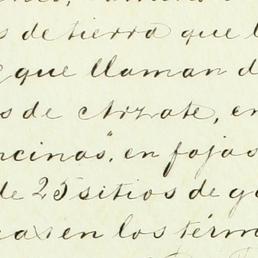 s de tierra que l
que llaman d
s de Arzate, en
ncinas", en fojas
de 25 sitios de ga
en los térm